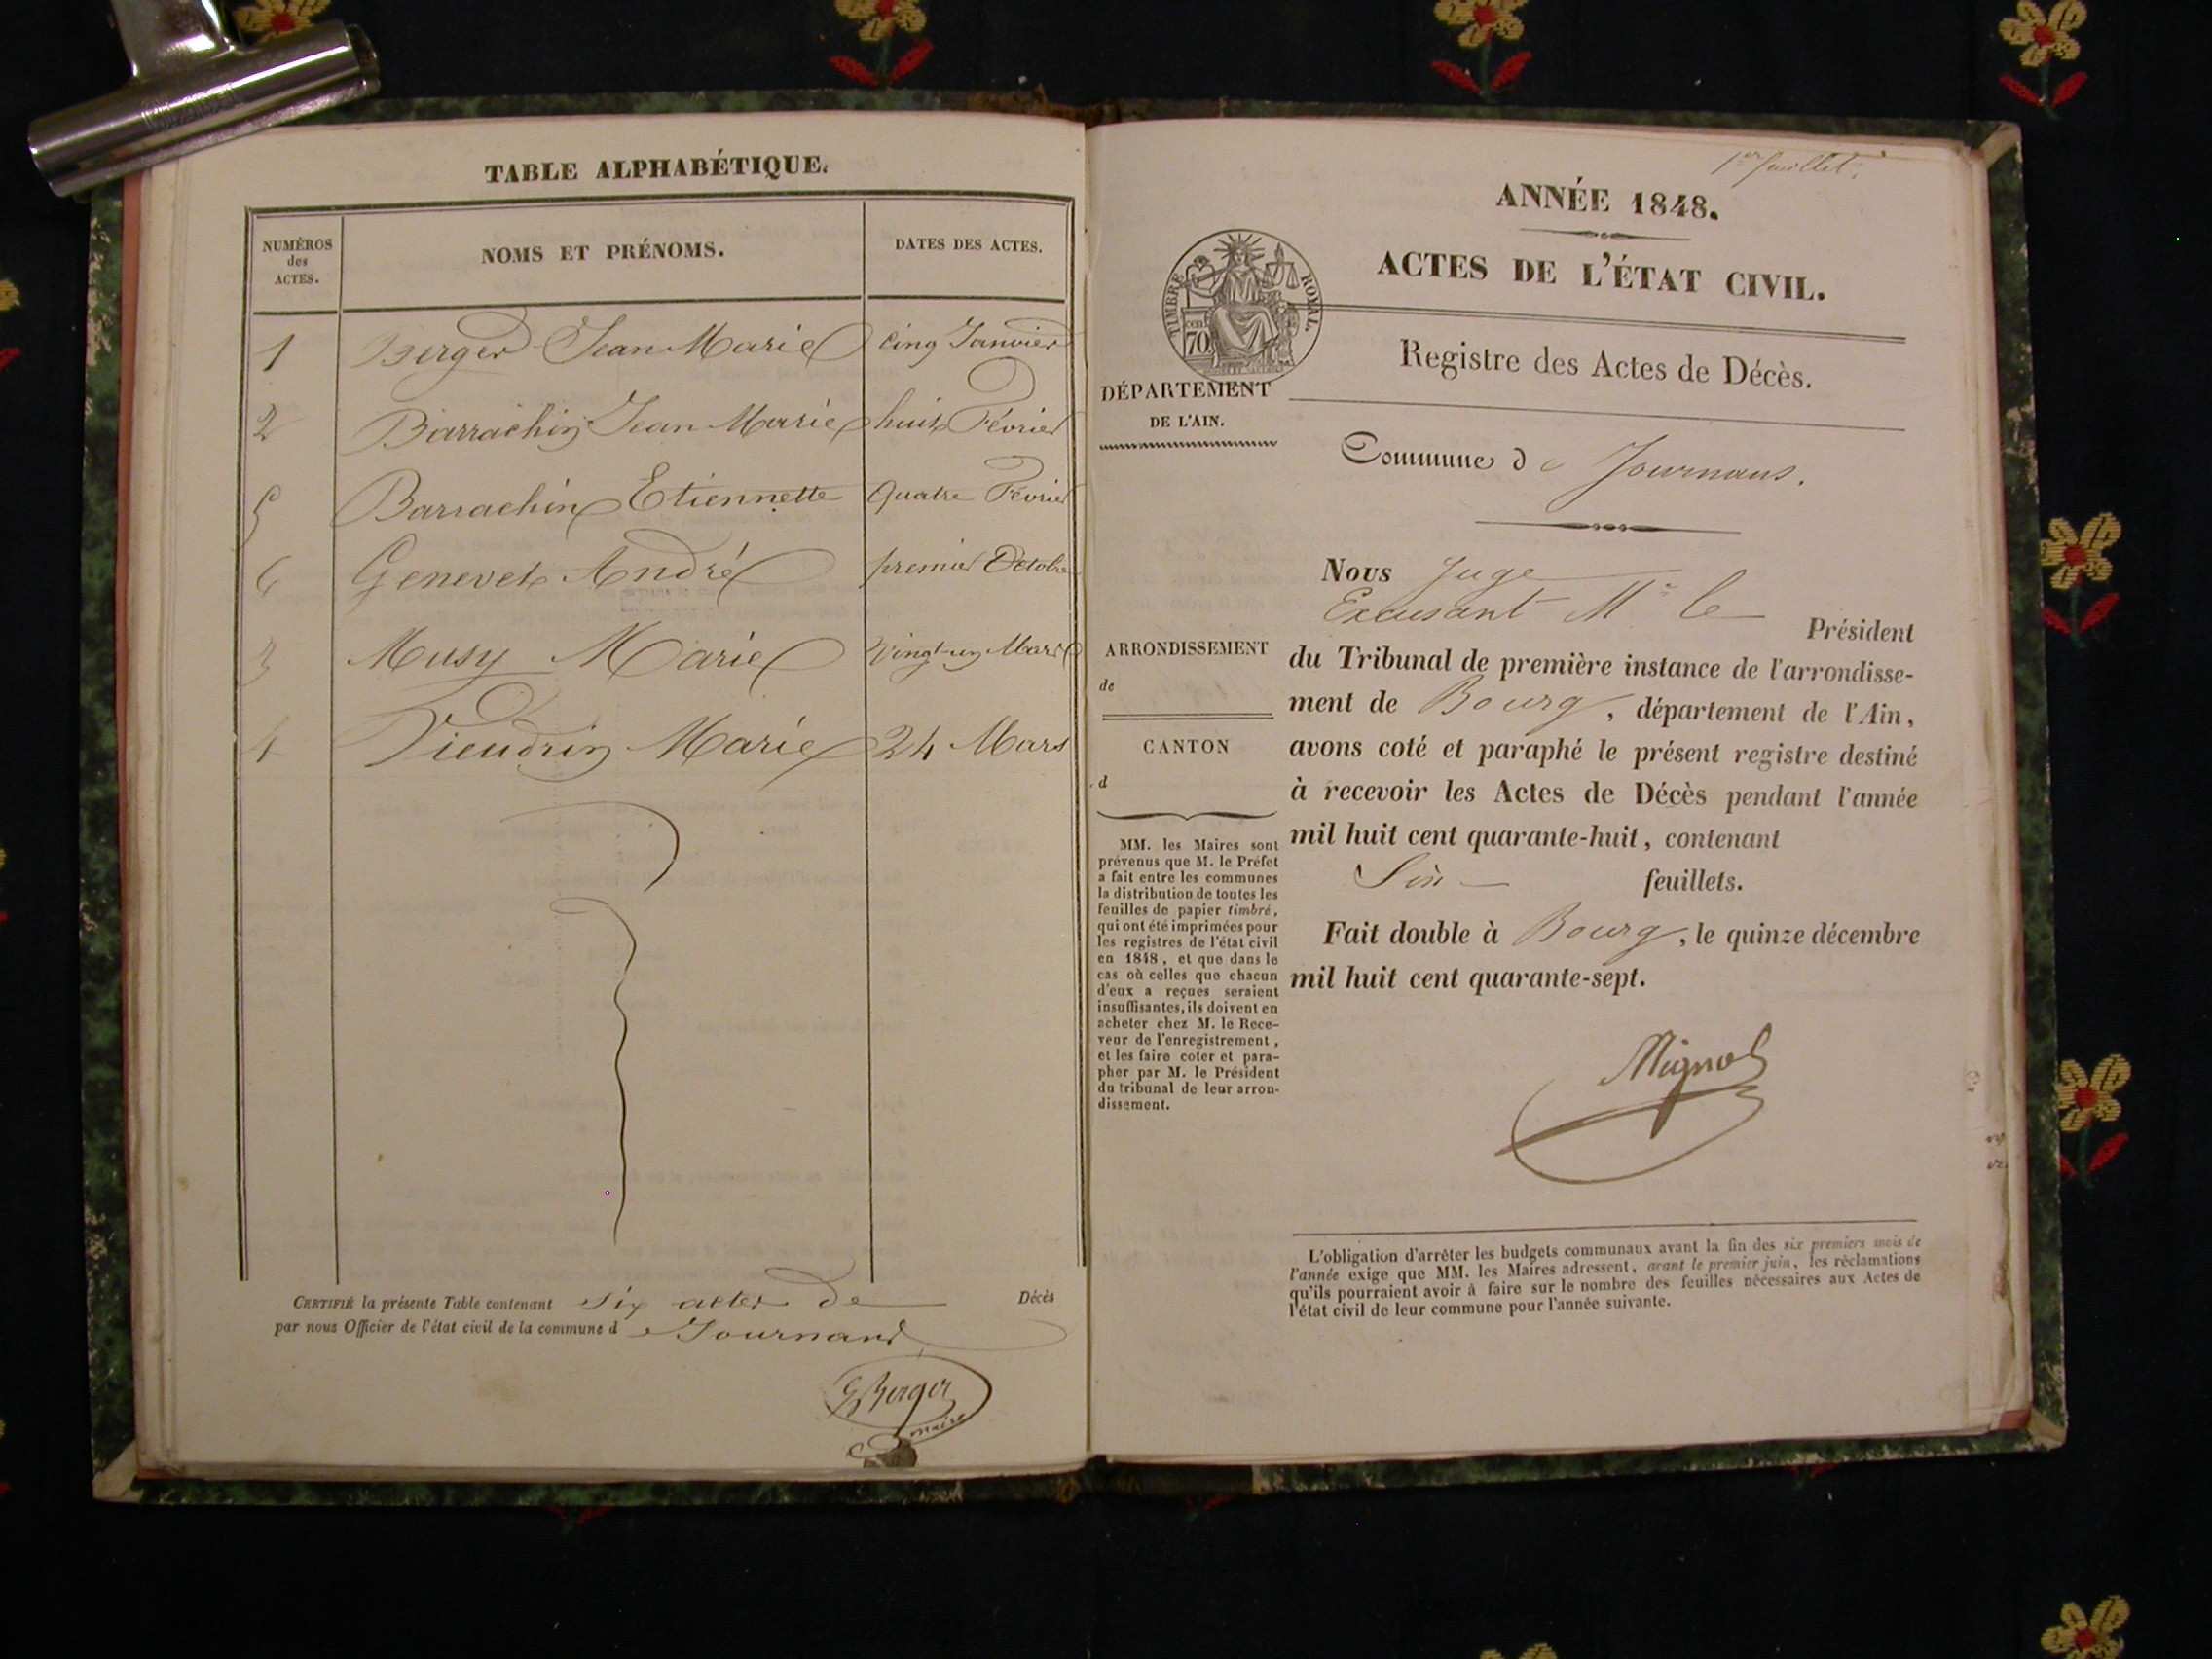 TABLE ALPHABÉTIQUE.
NUMÉROS
des
ACTES.
NOMS ET PRÉNOMS.
DATES DES ACTES.
1 Berger Jean Marie cinq Janvier
2 Barrachin Jean Marie huit Février
5 Barrachin Etiennette Quatre Février
6 Genevet André premier Octobre
3 Musy Marie Vingt un Mars
4 Vieudrin Marie 24 Mars
CERTIFIÉ la présente Table contenant six actes de Décès
par nous Officier de l'état civil de la commune de Journans
Berger
maire
1er feuillet.
ANNÉE 1848.
ACTES DE L'ÉTAT CIVIL.
TIMBRE ROYAL.
cen
70
Registre des Actes de Décès.
DÉPARTEMENT
DE L'AIN.
Commune de Journans.
Nous Juge
Excusant Mr le Président
du Tribunal de première instance de l'arrondisse-
ment de Bourg, département de l'Ain,
avons coté et paraphé le présent registre destiné
à recevoir les Actes de Décès pendant l'année
mil huit cent quarante-huit, contenant
Six feuillets.
Fait double à Bourg, le quinze décembre
mil huit cent quarante-sept.
Mignot
ARRONDISSEMENT
de
CANTON
d
MM. les Maires sont
prévenus que M. le Préfet
a fait entre les communes
la distribution de toutes les
feuilles de papier timbré,
qui ont été imprimées pour
les registres de l'état civil
en 1848, et que dans le
cas où celles que chacun
d'eux a reçues seraient
insuffisantes, ils doivent en
acheter chez M. le Rece-
veur de l'enregistrement,
et les faire coter et para-
pher par M. le Président
du tribunal de leur arron-
dissement.
L'obligation d'arrêter les budgets communaux avant la fin des six premiers mois de
l'année exige que MM. les Maires adressent, avant le premier juin, les réclamations
qu'ils pourraient avoir à faire sur le nombre des feuilles nécessaires aux Actes de
l'état civil de leur commune pour l'année suivante.